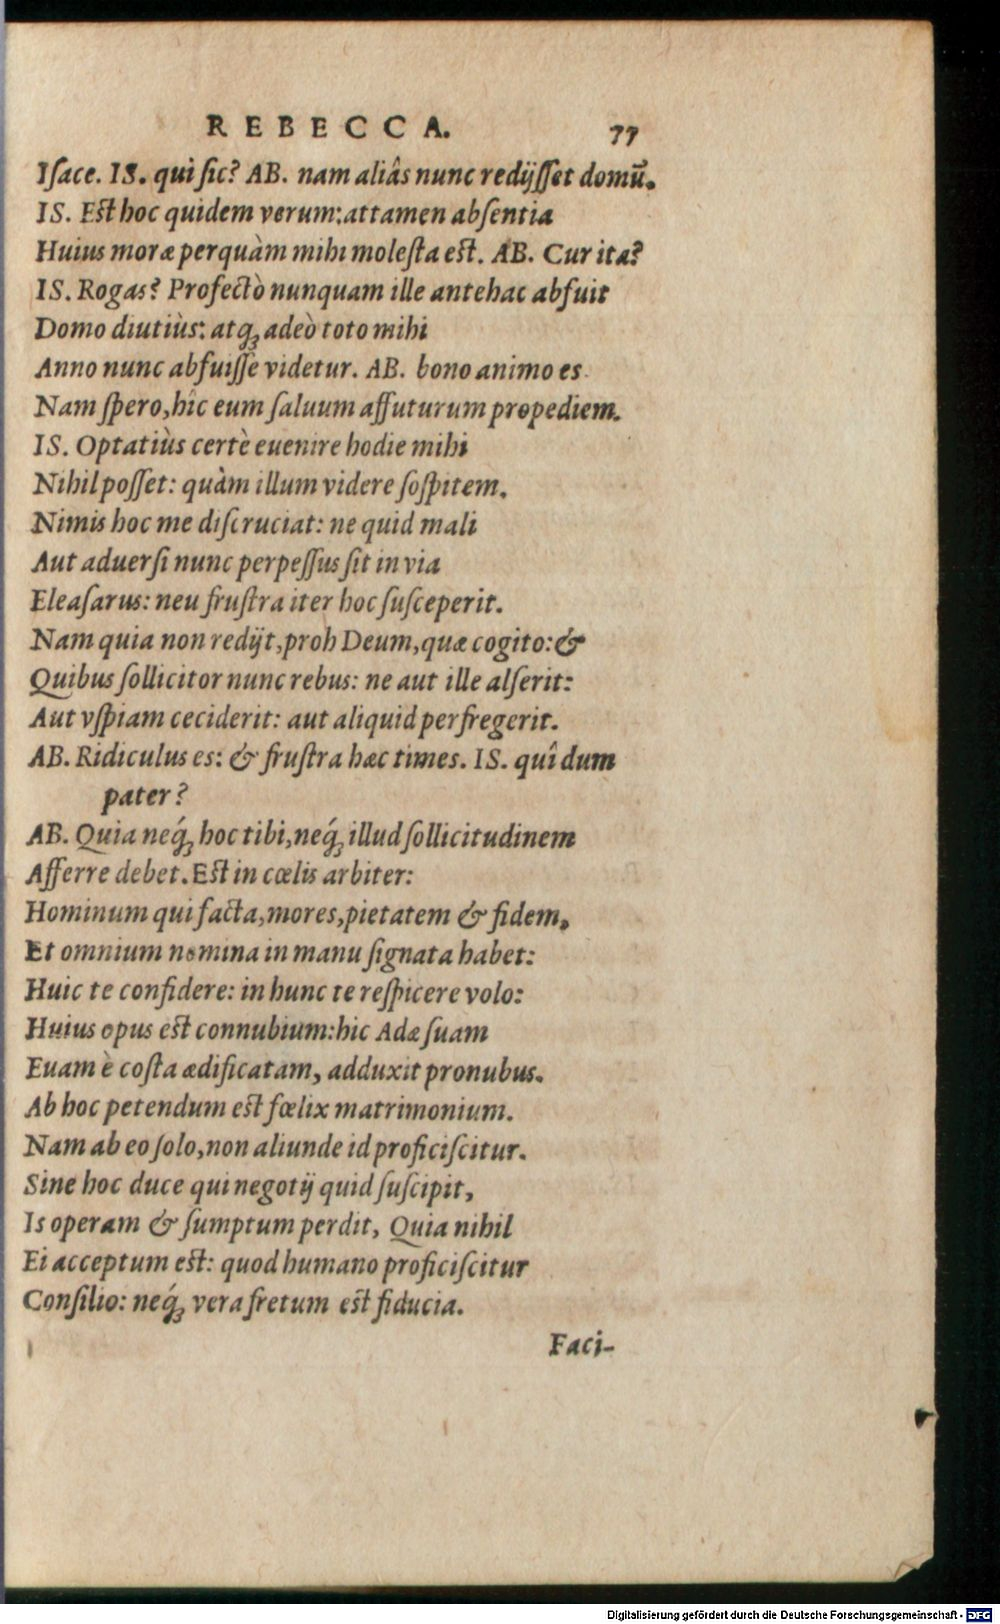 REBECCA. 77
Iſace. IS. qui ſic? AB. nam aliâs nunc redijſſet domū.
IS. Eſt hoc quidem verum: attamen abſentia
Huius moræ perquàm mihi moleſta eſt. AB. Cur ita?
IS. Rogas? Profectò nunquam ille antehac abfuit
Domo diutiùs: atq; adeò toto mihi
Anno nunc abfuiſſe videtur. AB. bono animo es.
Nam ſpero, hîc eum ſaluum affuturum propediem.
IS. Optatiùs certè euenire hodie mihi
Nihil poſſet: quàm illum videre ſoſpitem.
Nimis hoc me diſcruciat: ne quid mali
Aut aduerſi nunc perpeſſus ſit in via
Eleaſarus: neu fruſtra iter hoc ſuſceperit.
Nam quia non redijt, proh Deum, quæ cogito: &
Quibus ſollicitor nunc rebus: ne aut ille alſerit:
Aut vſpiam ceciderit: aut aliquid perfregerit.
AB. Ridiculus es: & fruſtra hæc times. IS. quî dum
pater?
AB. Quia neq́; hoc tibi, neq́; illud ſollicitudinem
Afferre debet. Eſt in cœlis arbiter:
Hominum qui facta, mores, pietatem & fidem,
Et omnium nomina in manu ſignata habet:
Huic te confidere: in hunc te reſpicere volo:
Huius opus eſt connubium: hic Adæ ſuam
Euam è coſta ædificatam, adduxit pronubus.
Ab hoc petendum eſt fœlix matrimonium.
Nam ab eo ſolo, non aliunde id proficiſcitur.
Sine hoc duce qui negotij quid ſuſcipit,
Is operam & ſumptum perdit, Quia nihil
Ei acceptum eſt: quod humano proficiſcitur
Conſilio: neq́; vera fretum eſt fiducia.
Faci-
Digitalisierung gefördert durch die Deutsche Forschungsgemeinschaft - DFG